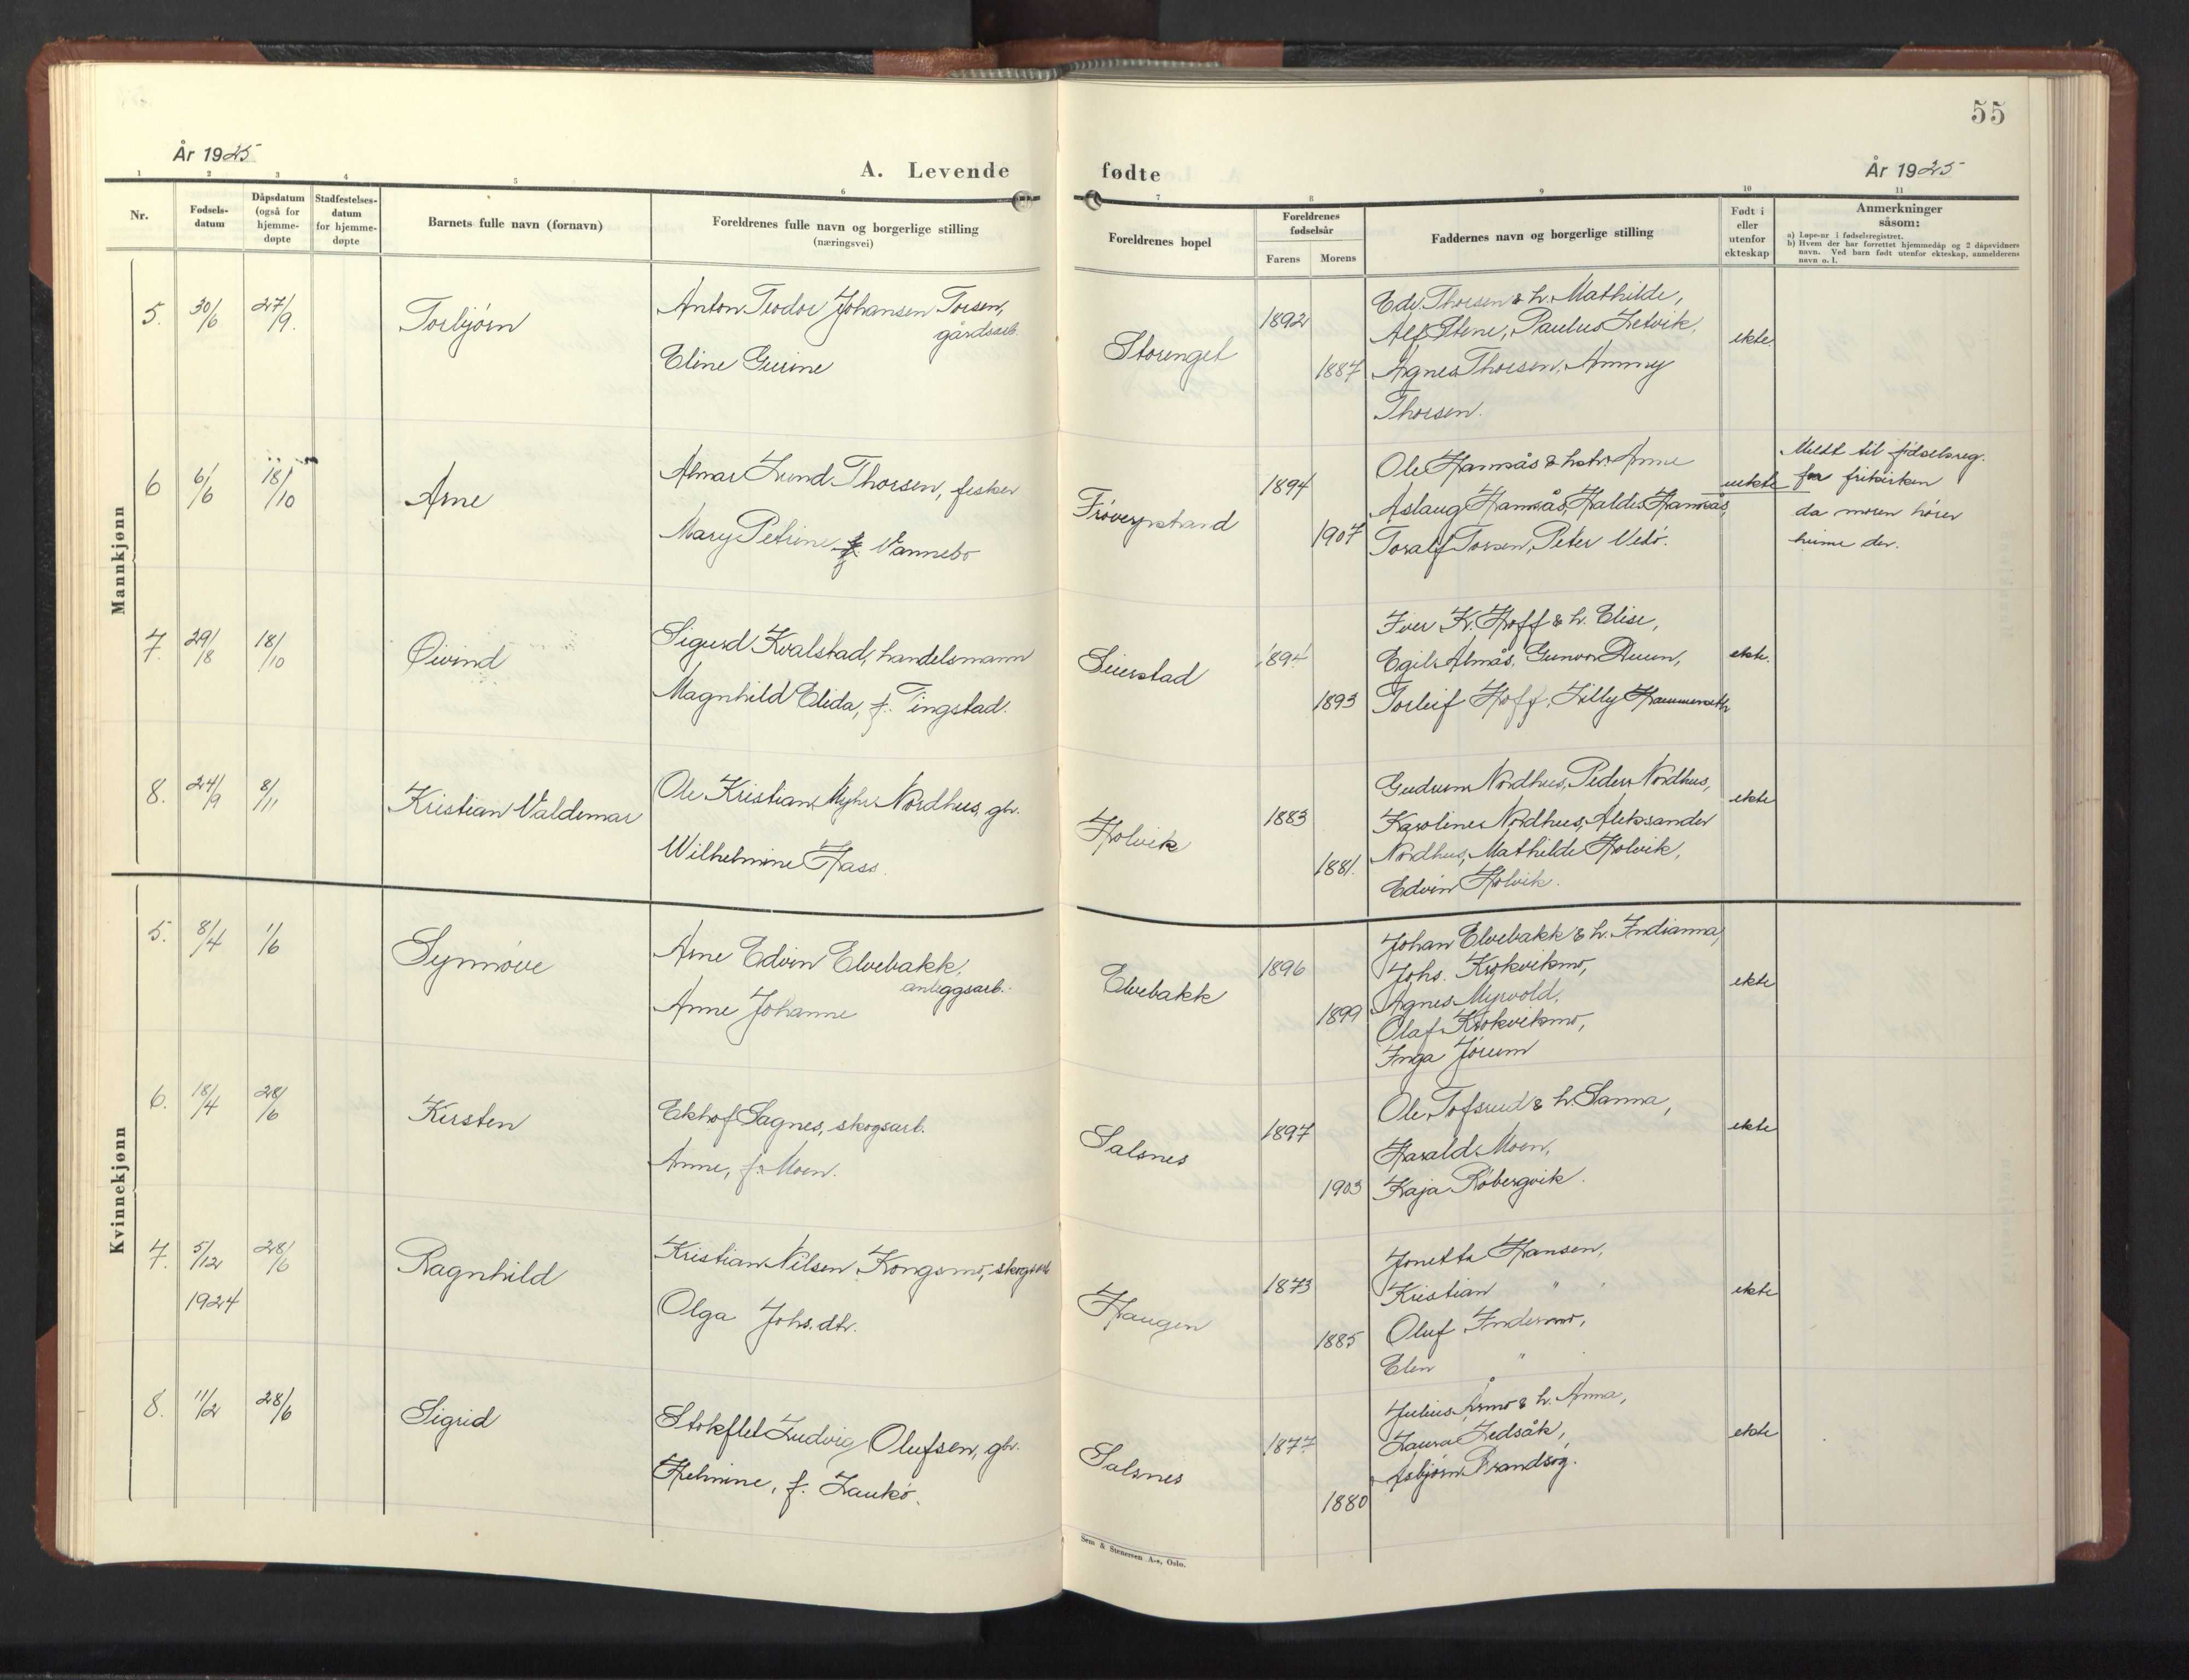 55
År 1925
A. Levende
fødte
År 1925
1
2
3
4
5
6
7
8
9
10
11
Nr.
Fødsels-
datum
Dåpsdatum
(også for
hjemme-
døpte
Stadfestelses-
datum
for hjemme-
døpte
Barnets fulle navn (fornavn)
Foreldrenes fulle navn og borgerlige stilling
(næringsvei)
Foreldrenes bopel
Foreldrenes
fødselsår
Farens
Morens
Faddernes navn og borgerlige stilling
Født i
eller
utenfor
ekteskap
Anmerkninger
såsom:
a) Løpe-nr i fødselsregistret.
b) Hvem der har forrettet hjemmedåp og 2 dåpsvidners
navn. Ved barn født utenfor ekteskap, anmelderens
navn o. l.
Mannkjønn
5.
30/6
27/9.
Torbjørn
Anton Teodor Johansen Torsen,
gårdsarb.
Eline Gurine
Storenget
1892
1887
Edv. Thorsen & h. Mathilde,
Alf Stene, Paulus Setvik,
Agnes Thorsen, Ammy
Thorsen.
ekte.
6
6/6
18/10
Arne
Almar Lund Thorsen, fisker
Mary Petrine f. Vannebo
1894
1907
Ole Hamsås & hstr. Anne
Aslaug Hamsås, Haldis Hamsås,
Toralf Torsen, Peter Vedø.
uekte
Meldt til fødselsreg.
fra frikirken
da moren hører
hjeme der.
7.
29/8
18/10
Øivind
Sigurd Kvalstad, handelsmann
Magnhild Elida, f. Tingstad.
Seierstad
1894
1893
Iver K. Hoff & h. Elise,
Egil Almås, Gunvor Duun,
Torleif Hoff, Lilly
ekte.
8.
24/9
8/11
Kristian Valdemar
Ole Kristian Myhr Nordhus, gbr.
Wilhelmine Hass.
Holvik
1883
1881.
Gudrun Nordhus, Peder Nordhus,
Karoline Nordhus, Aleksander
Nordhus, Mathilde Holvik,
Edvin Holvik.
ekte
Kvinnekjønn
5.
8/4
1/6
Synnøve
Arne Edvin Elvebakk,
anleggsarb.
Anne Johanne
Elvebakk
1896
1899
Johan Elvebakk & h. Indianna,
Johs. Krokvikmo,
Agnes Myrvold,
Olaf Krokvikmo,
Inga Jørum
ekte
6.
18/4
28/6
Kirsten
Ekhof Sagnes, skogsarb.
Anne, f. Moen.
Salsnes
1897
1903
Ole Tofsrud & h. Sanna,
Harald Moen,
Kaja Røbergvik.
ekte
7.
5/12
1924
28/6
Ragnhild
Kristian Nilsen Kongsmo, skogsarb
Olga Johs.dtr.
Haugen
1873
1885
Jonetta Hansen,
Kristian " "
Oluf Indermo,
Elen "
ekte
8.
11/2
28/6
Sigrid
Stokflet Ludvig Olufsen, gbr.
Helmine, f. Laukø.
Salsnes
1877
1880
Julius Årmo & h. Anna,
Laura Ledsåk,
Asbjørn Brandsøg.
ekte
Sem & Stenersen A-s, Oslo.